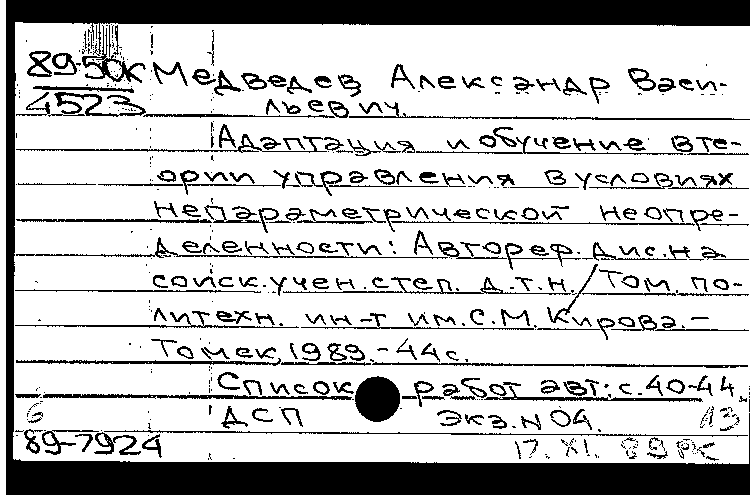 89-50К Медведев Александр Васи-
4523 льевич.
Адаптация и обучение в те-
ории управления в условиях
непараметрической неопре-
деленности: Автореф. дис. на
соиск. учен. степ. д.т.н. / Том. по-
литехн. ин-т им. С.М. Кирова. –
Томск, 1989. – 44 с.
Список работ авт.: с. 40-44.
б ДСП экз. N 04. АЗ
89-7924 17. XI. 89 РК